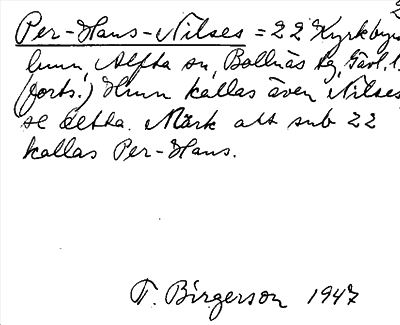 Per-Hans-Nilses = 22 Kyrkbyn
hmn, Alfta sn, Bollnäs tg, Gävl. l.
(forts.) Hmn kallas även Nilses
se detta. Märk att sub 22
kallas Per-Hans.
T. Birgerson 1947